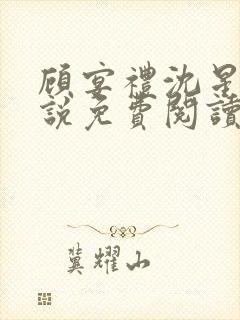 顾宴禮沈星
說免費閱讀
冀耀山